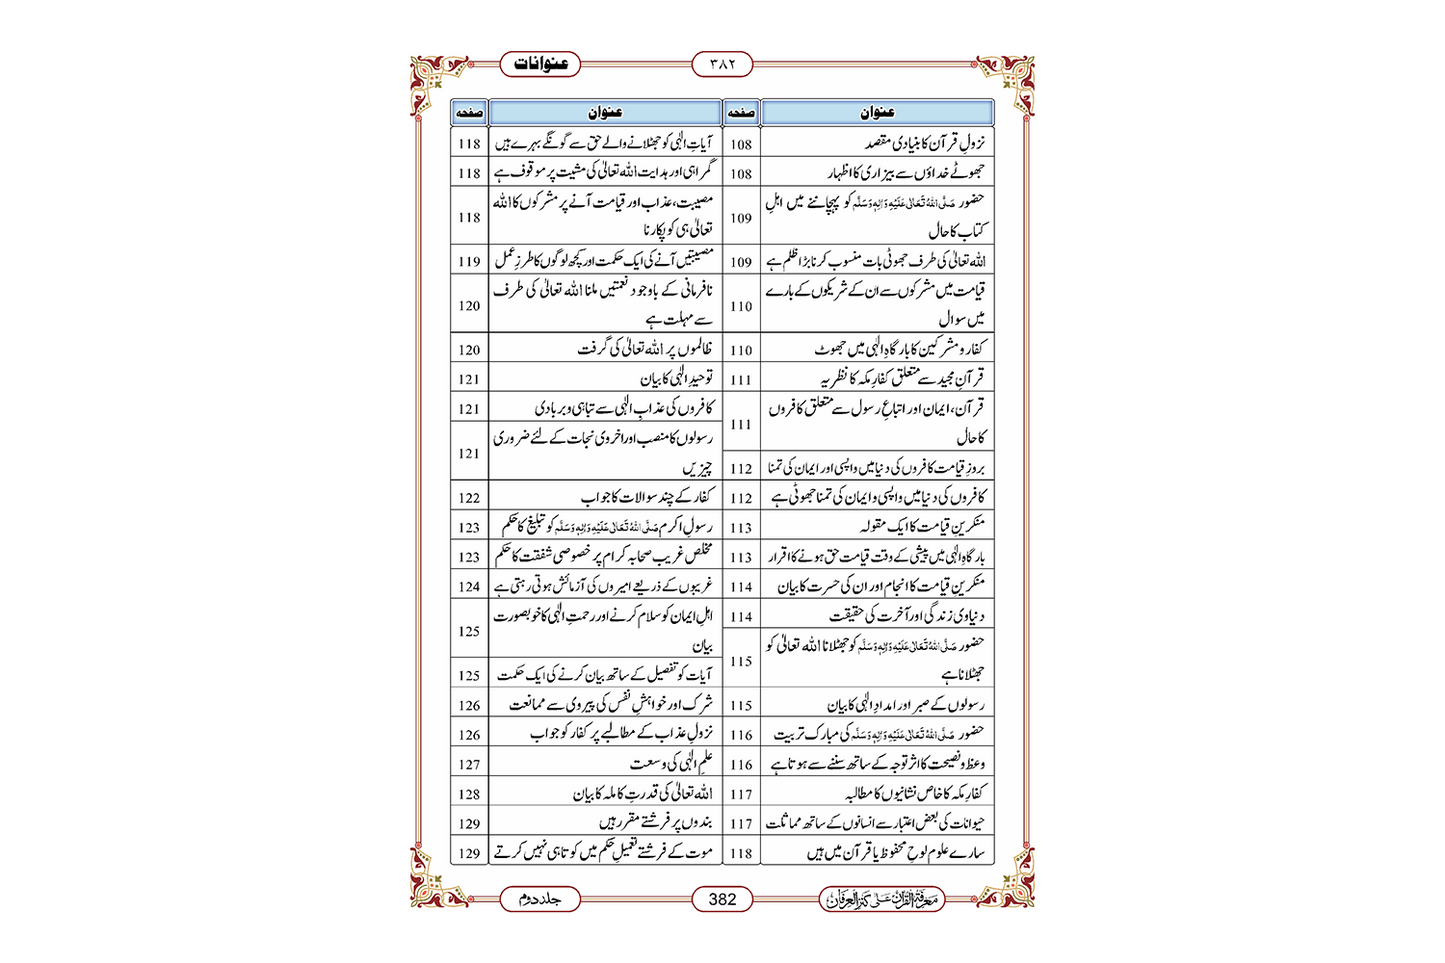 عنوانات
۳۸۲
عنوان صفحہ عنوان صفحہ
نزولِ قرآن کا بنیادی مقصد 108
جھوٹے خداؤں سے بیزاری کا اظہار 108
حضور صَلَّی اللہُ تَعَالٰی عَلَیْہِ وَاٰلِہٖ وَسَلَّم کو پہچاننے میں اہلِ
کتاب کا حال 109
اللہ تعالیٰ کی طرف جھوٹی بات منسوب کرنا بڑا ظلم ہے 109
قیامت میں مشرکوں سے ان کے شریکوں کے بارے
میں سوال 110
کفار و مشرکین کا بارگاہِ الٰہی میں جھوٹ 110
قرآنِ مجید سے متعلق کفارِ مکہ کا نظریہ 111
قرآن، ایمان اور اتباعِ رسول سے متعلق کافروں
کا حال 111
بروزِ قیامت کافروں کی دنیا میں واپسی اور ایمان کی تمنا 112
کافروں کی دنیا میں واپسی و ایمان کی تمنا جھوٹی ہے 112
منکرینِ قیامت کا ایک مقولہ 113
بارگاہِ الٰہی میں پیشی کے وقت قیامت حق ہونے کا اقرار 113
منکرینِ قیامت کا انجام اور ان کی حسرت کا بیان 114
دنیاوی زندگی اور آخرت کی حقیقت 114
حضور صَلَّی اللہُ تَعَالٰی عَلَیْہِ وَاٰلِہٖ وَسَلَّم کو جھٹلانا اللہ تعالیٰ کو
جھٹلانا ہے 115
رسولوں کے صبر اور امدادِ الٰہی کا بیان 115
حضور صَلَّی اللہُ تَعَالٰی عَلَیْہِ وَاٰلِہٖ وَسَلَّم کی مبارک تربیت 116
وعظ و نصیحت کا اثر توجہ کے ساتھ سننے سے ہوتا ہے 116
کفارِ مکہ کا خاص نشانیوں کا مطالبہ 117
حیوانات کی بعض اعتبار سے انسانوں کے ساتھ مماثلت 117
سارے علوم لوحِ محفوظ یا قرآن میں ہیں 118
آیاتِ الٰہی کو جھٹلانے والے حق سے گونگے بہرے ہیں 118
گمراہی اور ہدایت اللہ تعالیٰ کی مشیت پر موقوف ہے 118
مصیبت، عذاب اور قیامت آنے پر مشرکوں کا اللہ
تعالیٰ ہی کو پکارنا 118
مصیبتیں آنے کی ایک حکمت اور کچھ لوگوں کا طرزِ عمل 119
نافرمانی کے باوجود نعمتیں ملنا اللہ تعالیٰ کی طرف
سے مہلت ہے 120
ظالموں پر اللہ تعالیٰ کی گرفت 120
توحیدِ الٰہی کا بیان 121
کافروں کی عذابِ الٰہی سے تباہی و بربادی 121
رسولوں کا منصب اور اخروی نجات کے لئے ضروری
چیزیں 121
کفار کے چند سوالات کا جواب 122
رسولِ اکرم صَلَّی اللہُ تَعَالٰی عَلَیْہِ وَاٰلِہٖ وَسَلَّم کو تبلیغ کا حکم 123
مخلص غریب صحابہ کرام پر خصوصی شفقت کا حکم 123
غریبوں کے ذریعے امیروں کی آزمائش ہوتی رہتی ہے 124
اہلِ ایمان کو سلام کرنے اور رحمتِ الٰہی کا خوبصورت
بیان 125
آیات کو تفصیل کے ساتھ بیان کرنے کی ایک حکمت 125
شرک اور خواہشِ نفس کی پیروی سے ممانعت 126
نزولِ عذاب کے مطالبے پر کفار کو جواب 126
علمِ الٰہی کی وسعت 127
اللہ تعالیٰ کی قدرتِ کاملہ کا بیان 128
بندوں پر فرشتے مقرر ہیں 129
موت کے فرشتے تعمیلِ حکم میں کوتاہی نہیں کرتے 129
معرفۃ القرآن علی کنز العرفان
382
جلد دوم